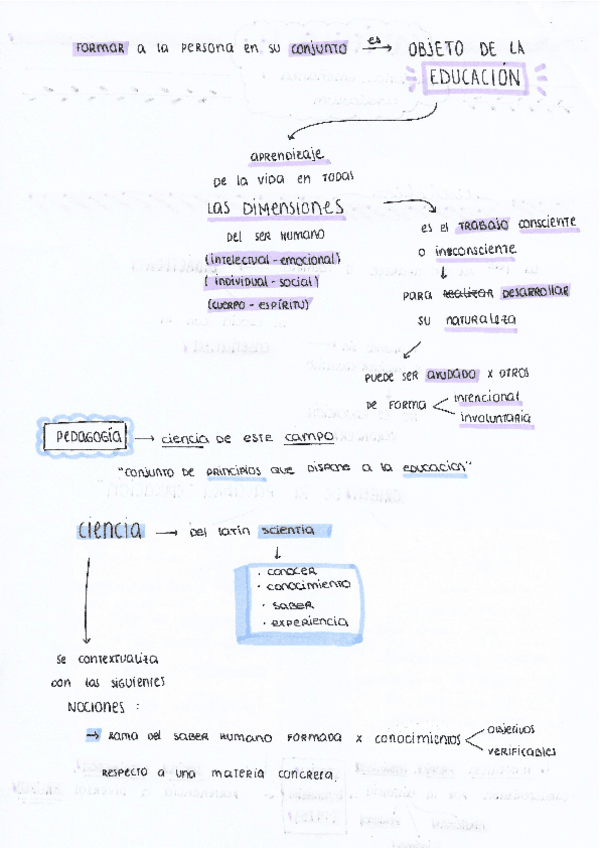 FORMAR a la PERSONA en su CONJUNTO es → OBJETO DE LA
EDUCACIÓN
aprendizaje
DE la VIDA en TODAS
Las DIMENSIONES
DEL SER HUMANO
(intelectual - emocional)
( individual - social)
(CUERPO - ESPÍRITU)
es el TRABAJO consciente
o inconsciente
↓
para realizar DESARROLLAR
su naturaleza
PUEDE SER AYUDADO x OTROS
DE FORMA < intencional
involuntaria
PEDAGOGÍA → ciencia DE ESTE campo
"CONJUNTO DE PRINCIPIOS QUE DISPONE a la EDUCACIÓN"
ciencia → DEL latín scientia
↓
· CONOCER
· CONOCIMIENTO
· SABER
· EXPERIENCIA
Se contextualiza
con las siguientes
NOCIONES :
→ RAMA DEL SABER HUMANO FORMADA x CONOCIMIENTOS < OBJETIVOS
VERIFICABLES
RESPECTO A una materia concreta